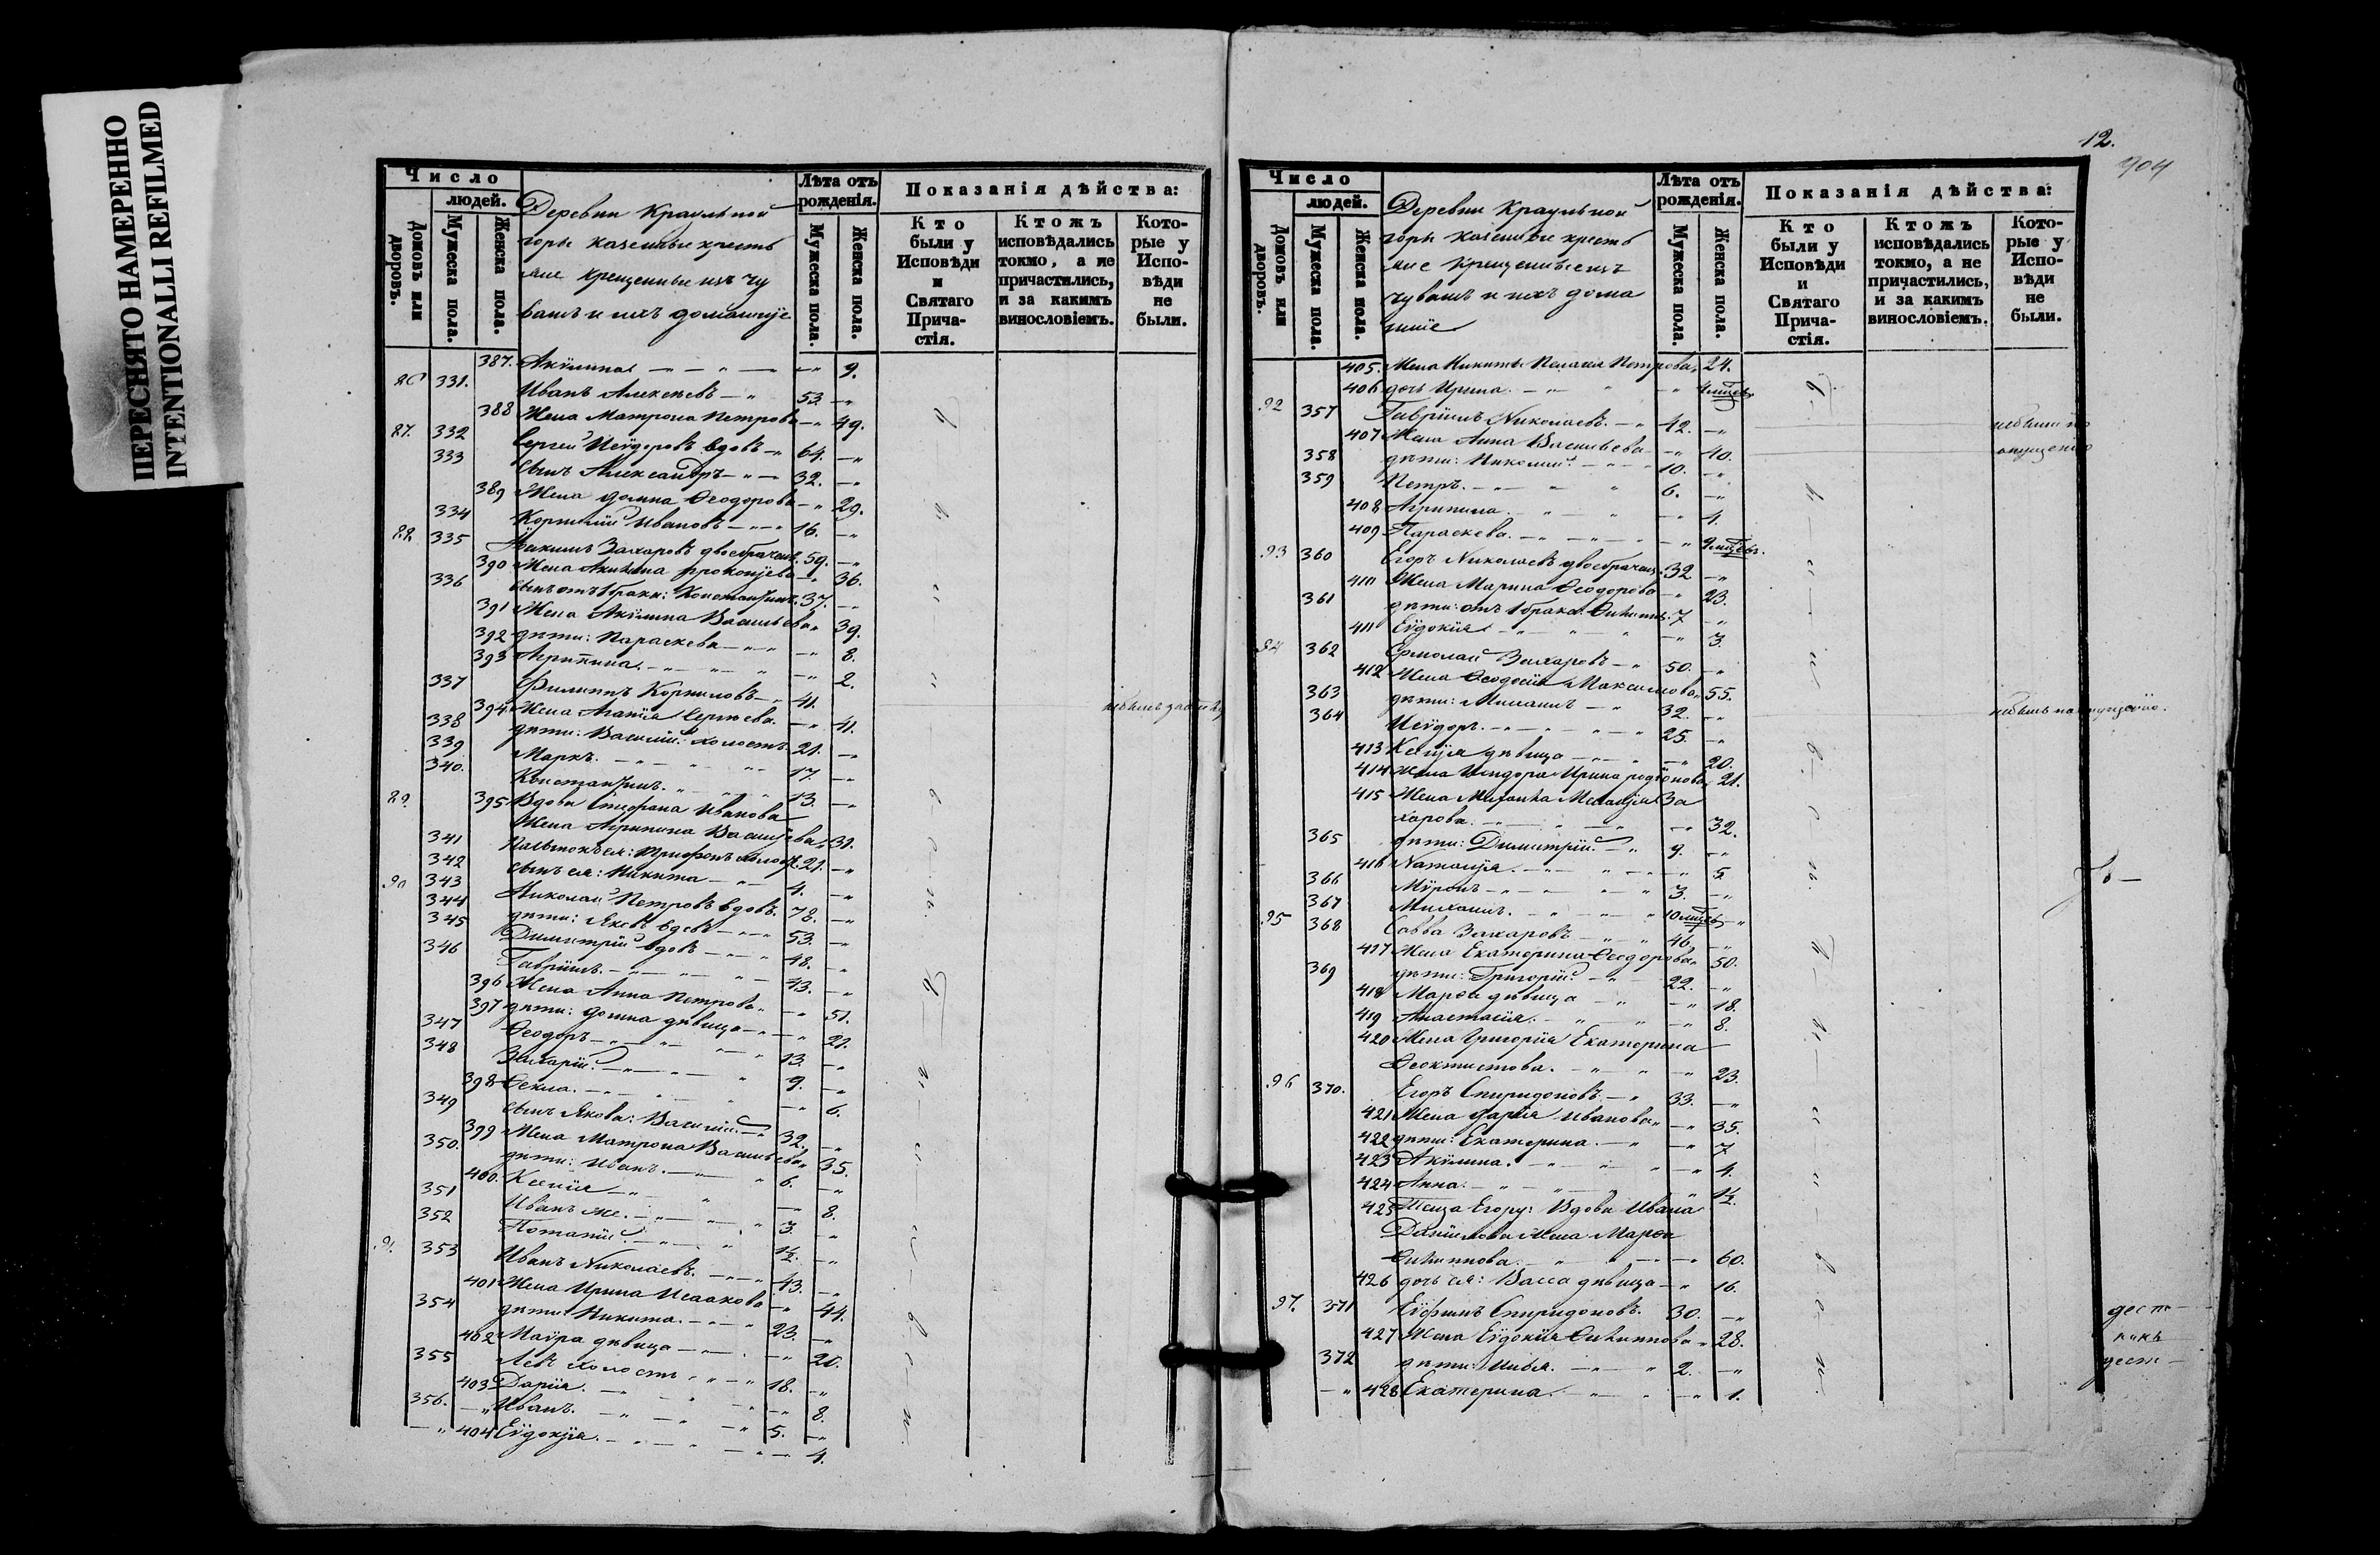 ПЕРЕСНЯТО НАМЕРЕННО
INTENTIONALLI REFILMED
Число
людей.
Домовъ или дворовъ.
Мужеска пола.
Женска пола.
Деревни Караульной
горы казенные кресть
яне крещенные изъ чу
вашъ и ихъ домашніе
Лѣта отъ рожденія.
Мужеска пола.
Женска пола.
Показанія дѣйства:
Кто были у Исповѣди и Святаго Причастія.
Ктожъ исповѣдались токмо, а не причастились, и за какимъ винословіемъ.
Которые у Исповѣди не были.
387. Акулина 9.
86 331. Иванъ Алексѣевъ 53.
388 Жена Матрона Петрова 49.
87. 332 Сергей Исидоровъ вдовъ 64.
333 сынъ Александръ 32.
389 Жена Домна Ѳеодорова 29.
334 Корнилій Ивановъ 16.
88 335 Іакимъ Захаровъ двоебрачен. 59.
390 Жена Акилина Прокопьева 36.
336 сынъ отъ 1 брака: Константинъ 37.
391 Жена Акулина Васильева 39.
392 дѣти: Параскева 8.
393 Агрипина 2.
337 Филиппъ Корниловъ 41.
394. Жена Агапія Сергѣева 41.
338 дѣти: Василій холостъ 21.
339 Маркъ 17.
340. Константинъ 13.
89. 395 Вдова Стефана Иванова
Жена Агрипина Васильева 31.
341 Трифонъ холост. 21.
342 сынъ ея: Никита 4.
90 343 Николай Петровъ вдовъ 78.
344 дѣти: Яковъ вдовъ 53.
345 Димитрій вдовъ 48.
346 Гавріилъ 43.
396 Жена Анна Петрова 51.
397 дѣти: Домна дѣвица 21.
347 Ѳеодоръ 13.
348 Захарій 9.
398 Ѳекла 6.
349 сынъ Якова: Василій 32.
399 Жена Матрона Васильева 35.
350. дѣти: Иванъ 6.
400. Ксенія 8.
351 Иванъ же 3.
352 Потапій 1½.
91. 353 Иванъ Николаевъ 43.
401 Жена Ирина Исаакова 44.
354 дѣти: Никита 23.
402 Маура дѣвица 20.
355 Левъ холостъ 18.
403 Дарія 8.
356. Иванъ 5.
404 Еудокія 4.
12.
904
Число
людей.
Домовъ или дворовъ.
Мужеска пола.
Женска пола.
Деревни Караульной
горы казенные кресть
яне крещенные изъ
чувашъ и ихъ дома
шніе
Лѣта отъ рожденія.
Мужеска пола.
Женска пола.
Показанія дѣйства:
Кто были у Исповѣди и Святаго Причастія.
Ктожъ исповѣдались токмо, а не причастились, и за какимъ винословіемъ.
Которые у Исповѣди не были.
405. Жена Никиты Пелагія Петрова 24.
406 дочь Ирина
92 357 Гавріилъ Николаевъ 42.
407 Жена Анна Васильева 40.
небыли по
опущенію
358 дѣти: Николай 10.
359 Петръ 6.
408 Агрипина 4.
409 Параскева
93 360 Егоръ Николаевъ двоебрачен. 32
410 Жена Марина Ѳеодорова 23.
361 дѣти: отъ 1 брака 7
411 Еудокія 3.
94 362 Ермолай Захаровъ 50.
412 Жена Ѳеодосія Максимова 55.
363 дѣти: Михаилъ 32.
небылъ по опущенію.
364 Исідоръ 25.
413 Ксенія дѣвица 20.
414 Жена Исидора Ирина Родіонова 21.
415 Жена Михаила Меланія За
харова 32.
365 дѣти: Димитрій 9.
416 Наталія 5
366 Мѵронъ 3.
367 Михаилъ
95 368 Савва Захаровъ 46.
417 Жена Екатерина Ѳеодорова 50.
369 дѣти: Григорій 22.
418 Марѳа дѣвица 18.
419 Анастасія 8.
420 Жена Григорія Екатерина
Ѳеоктистова 23.
96 370. Егоръ Спиридоновъ 33.
421 Жена Дарія Иванова 35.
422 дѣти: Екатерина 7
423 Акулина 4.
424 Анна 1½.
425 Теща Егору: Вдова Ивана
Даніилова Жена Марѳа
Филиппова 60.
426 дочь ея: Васса дѣвица 16.
97. 371 Еуфимъ Спиридоновъ 30.
427 Жена Еудокія Филиппова 28.
372 дѣти: Илья 2.
428 Екатерина 1.